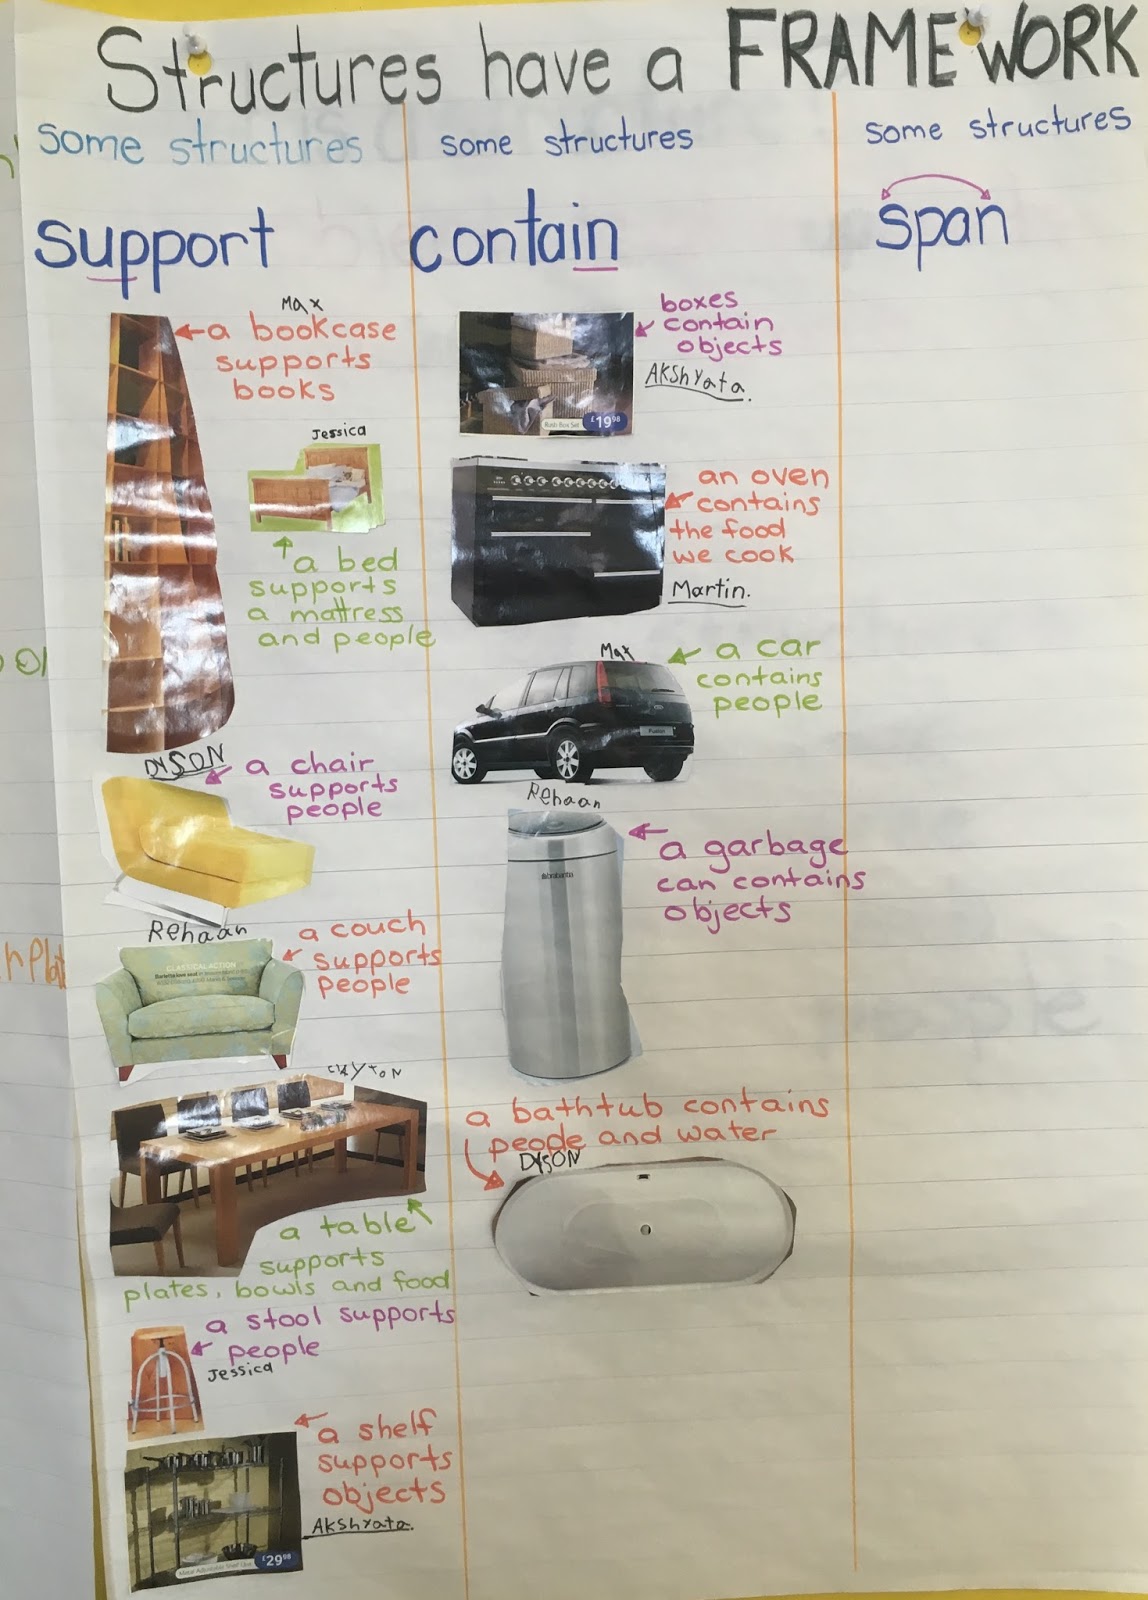 Structures have a FRAMEWORK
some structures
support
Max
a bookcase
supports
books
Jessica
a bed
supports
a mattress
and people
DYSON
a chair
supports
people
Rehaan
a couch
supports
people
CLASSICAL ACTION
CLAYTON
a table
supports
plates, bowls and food
a stool supports
people
Jessica
a shelf
supports
objects
AKShYata.
£29.98
some structures
contain
boxes
contain
objects
AKShYata.
Rush Box Set
£19.98
an oven
contains
the food
we cook
Martin.
Max
a car
contains
people
Fusion
Rehaan
a garbage
can contains
objects
brabantia
a bathtub contains
people and water
DYSON
some structures
span